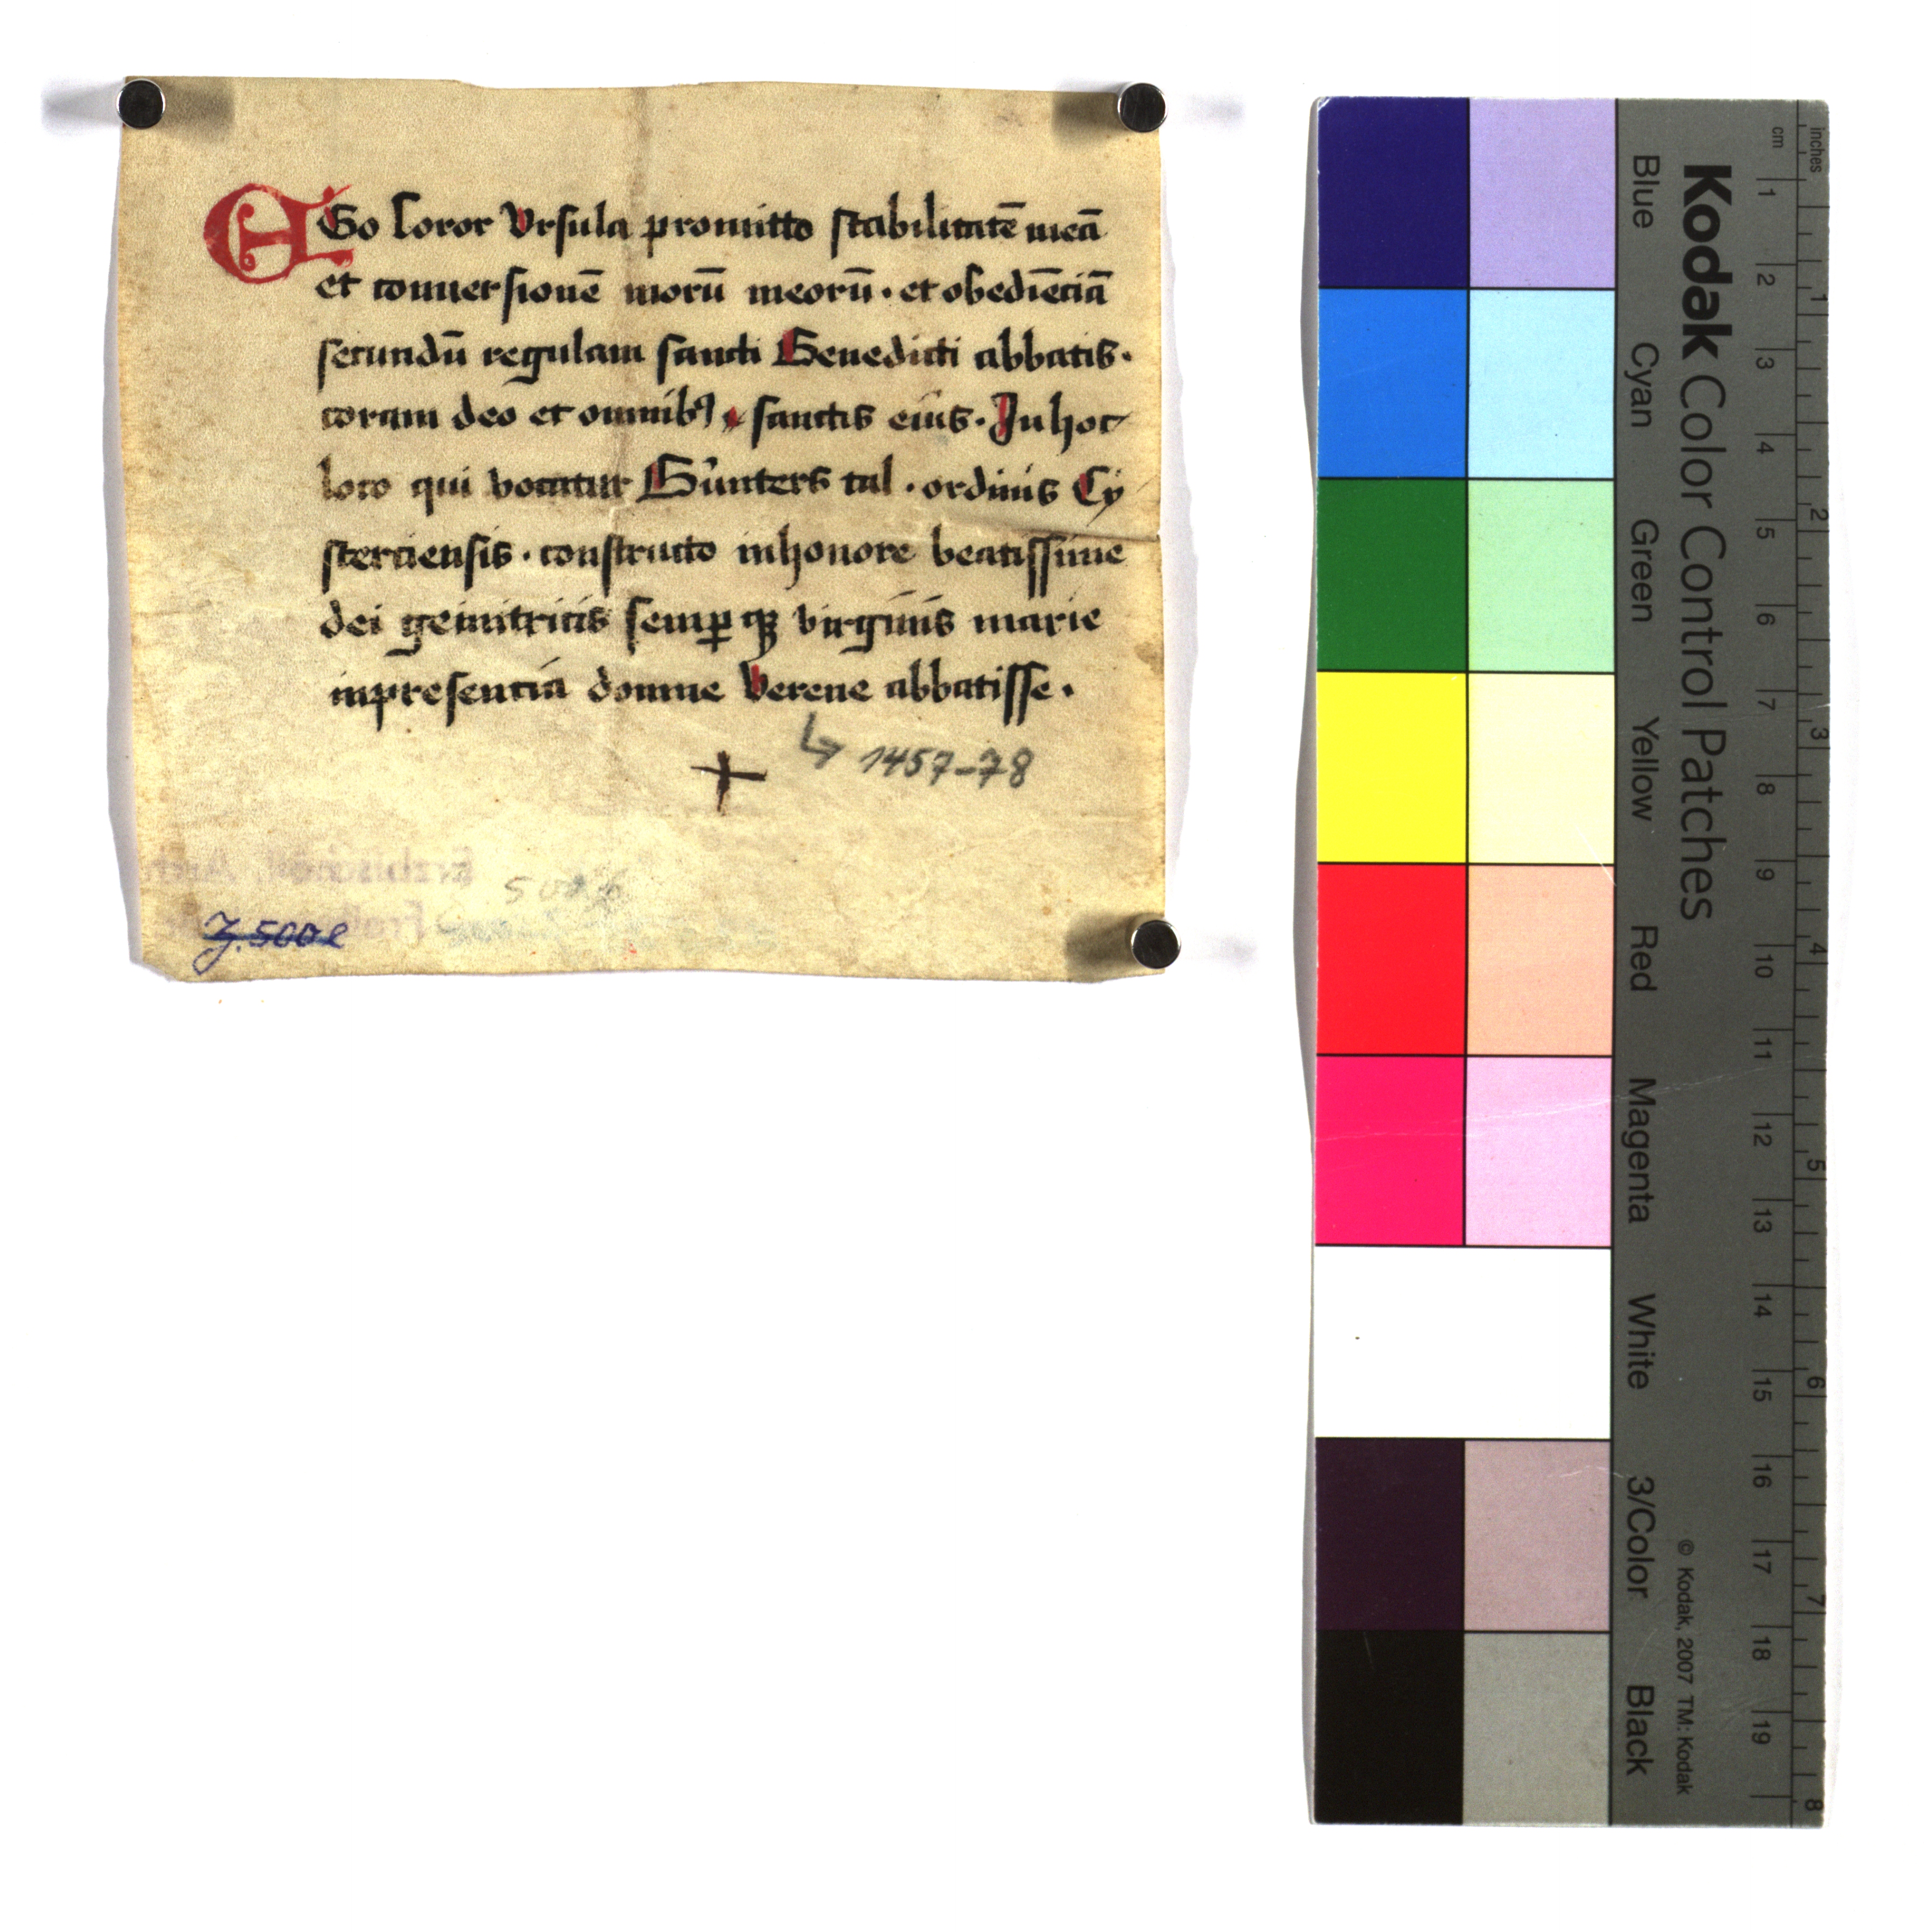 EGo Soror Vrsula promitto stabilitatē meā
et conuersionē morū meorū · et obediēciā
secundū regulam sancti Benedicti abbatis ·
coram deo et omnibꝰ · sanctis eius · In hoc
loco qui vocatur Gu̓nters tal · ordinis Cy
sterciensis · constructo inhonore beatissime
dei genitricis semꝑ qꝫ virginis marie
inpresencia domne Verene abbatisse ·
↳ 1457-78
+
Z. 500 e
Kodak Color Control Patches
Blue Cyan Green Yellow Red Magenta White 3/Color Black
© Kodak, 2007 TM: Kodak
cm 1 2 3 4 5 6 7 8 9 10 11 12 13 14 15 16 17 18 19
inches 1 2 3 4 5 6 7 8